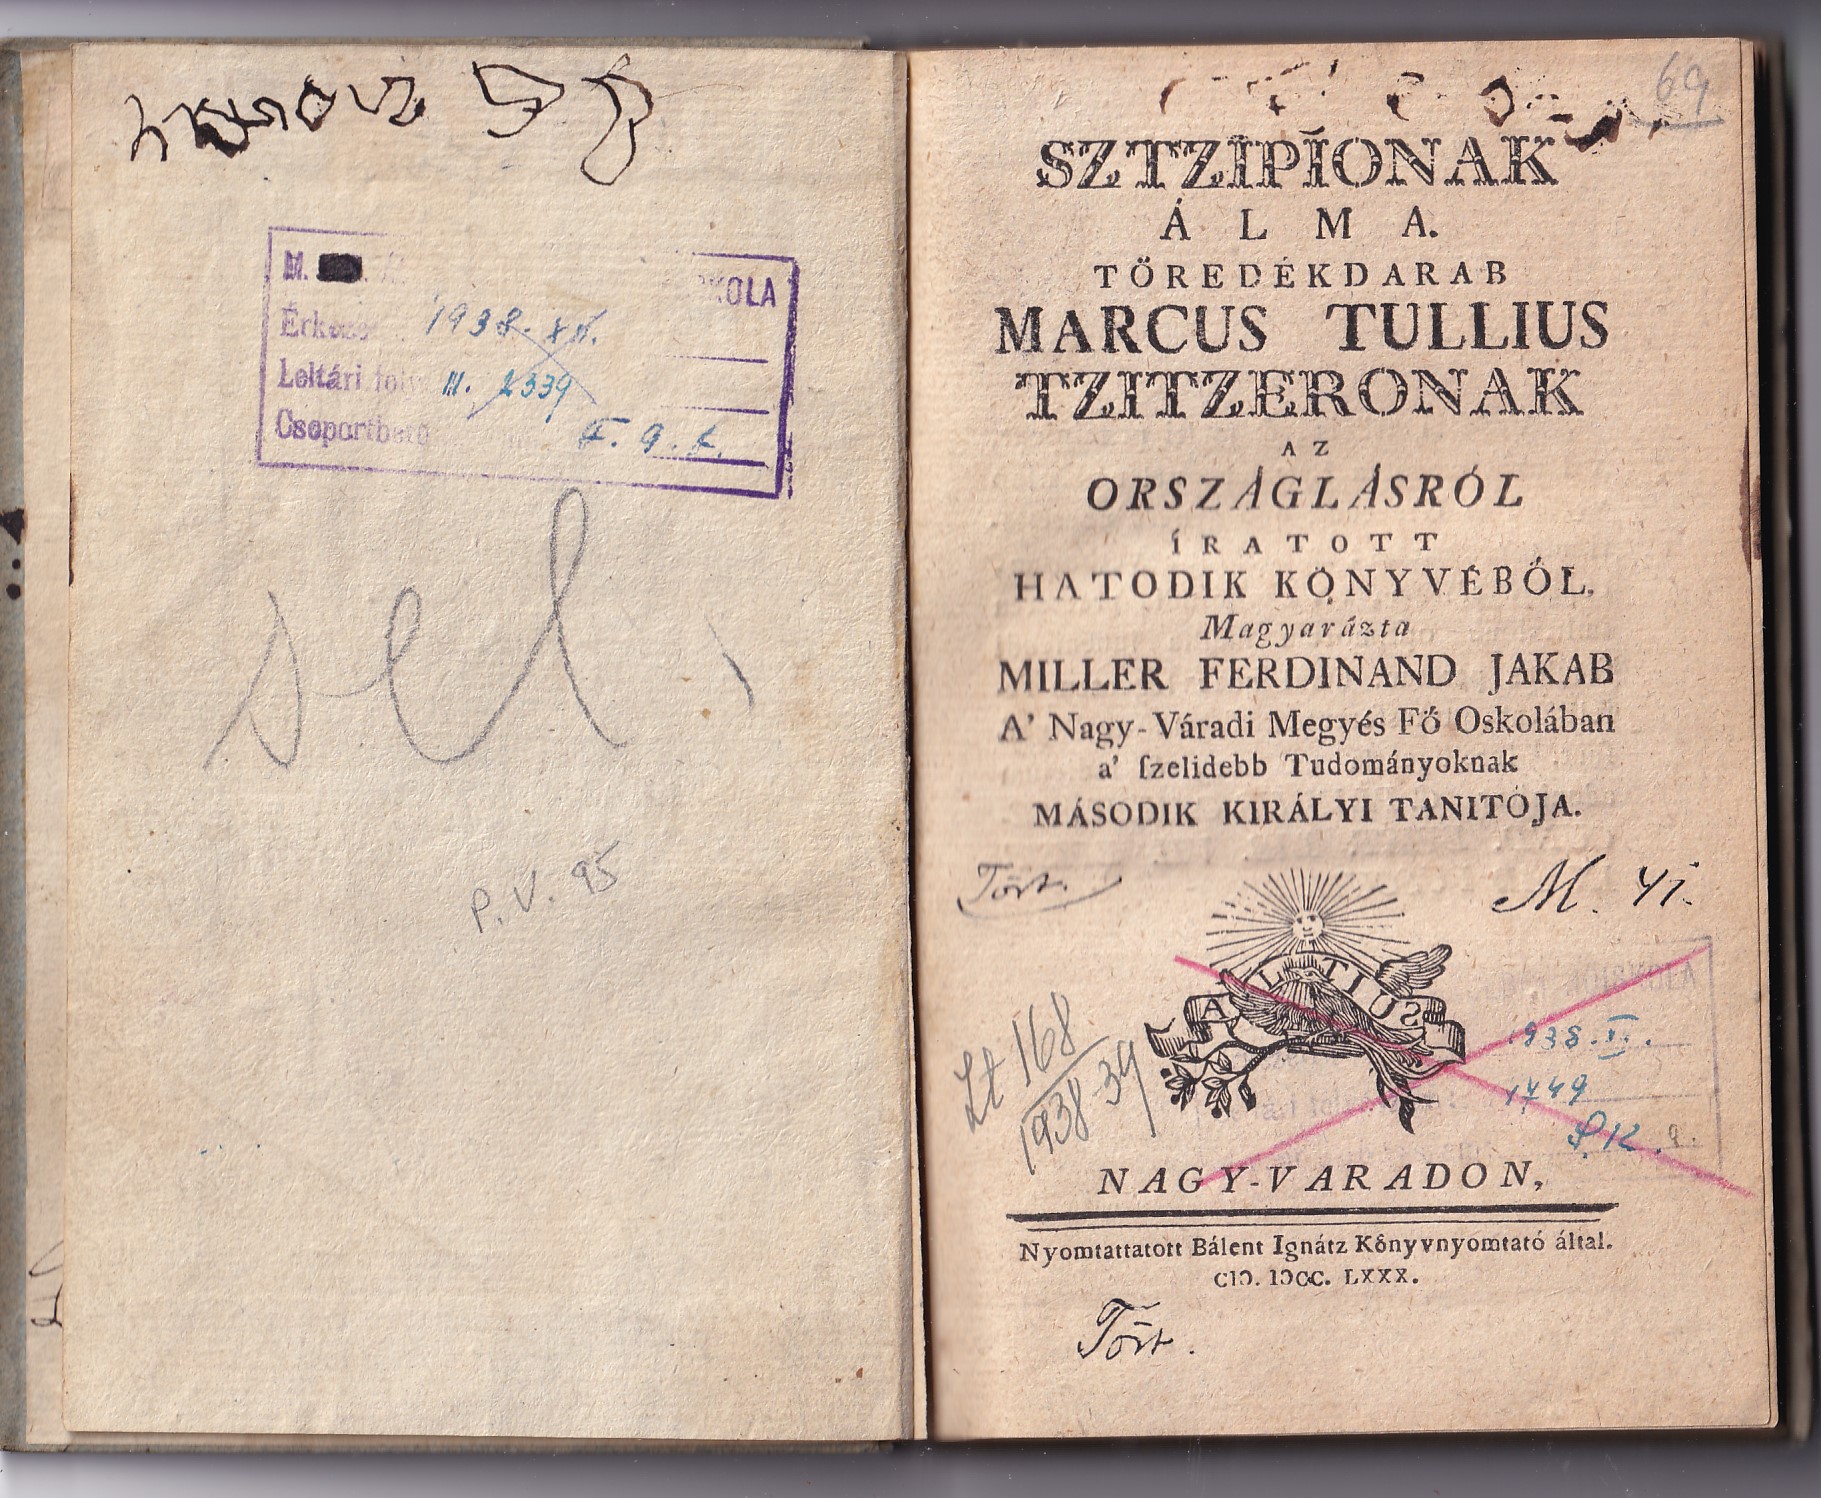 M.
KOLA
Érkez 1938. XII.
Leltári foly III. 2339
Csoportbeo
sel.
P. V. 95
69
SZTZIPÍONAK
ÁLMA.
TÖREDÉKDARAB
MARCUS TULLIUS
TZITZERONAK
AZ
ORSZÁGLÁSRÓL
ÍRATOTT
HATODIK KÖNYVÉBŐL.
Magyarázta
MILLER FERDINAND JAKAB
A' Nagy-Váradi Megyés Fő Oskolában
a' ſzelidebb Tudományoknak
MÁSODIK KIRÁLYI TANITÓJA.
Tört.
M. 41.
ALTIUS
Lt 168
1938-39
1938. II.
1749
NAGY-VARADON,
Nyomtattatott Bálent Ignátz Kőnyvnyomtató által.
CIƆ. IƆCC. LXXX.
Tört.